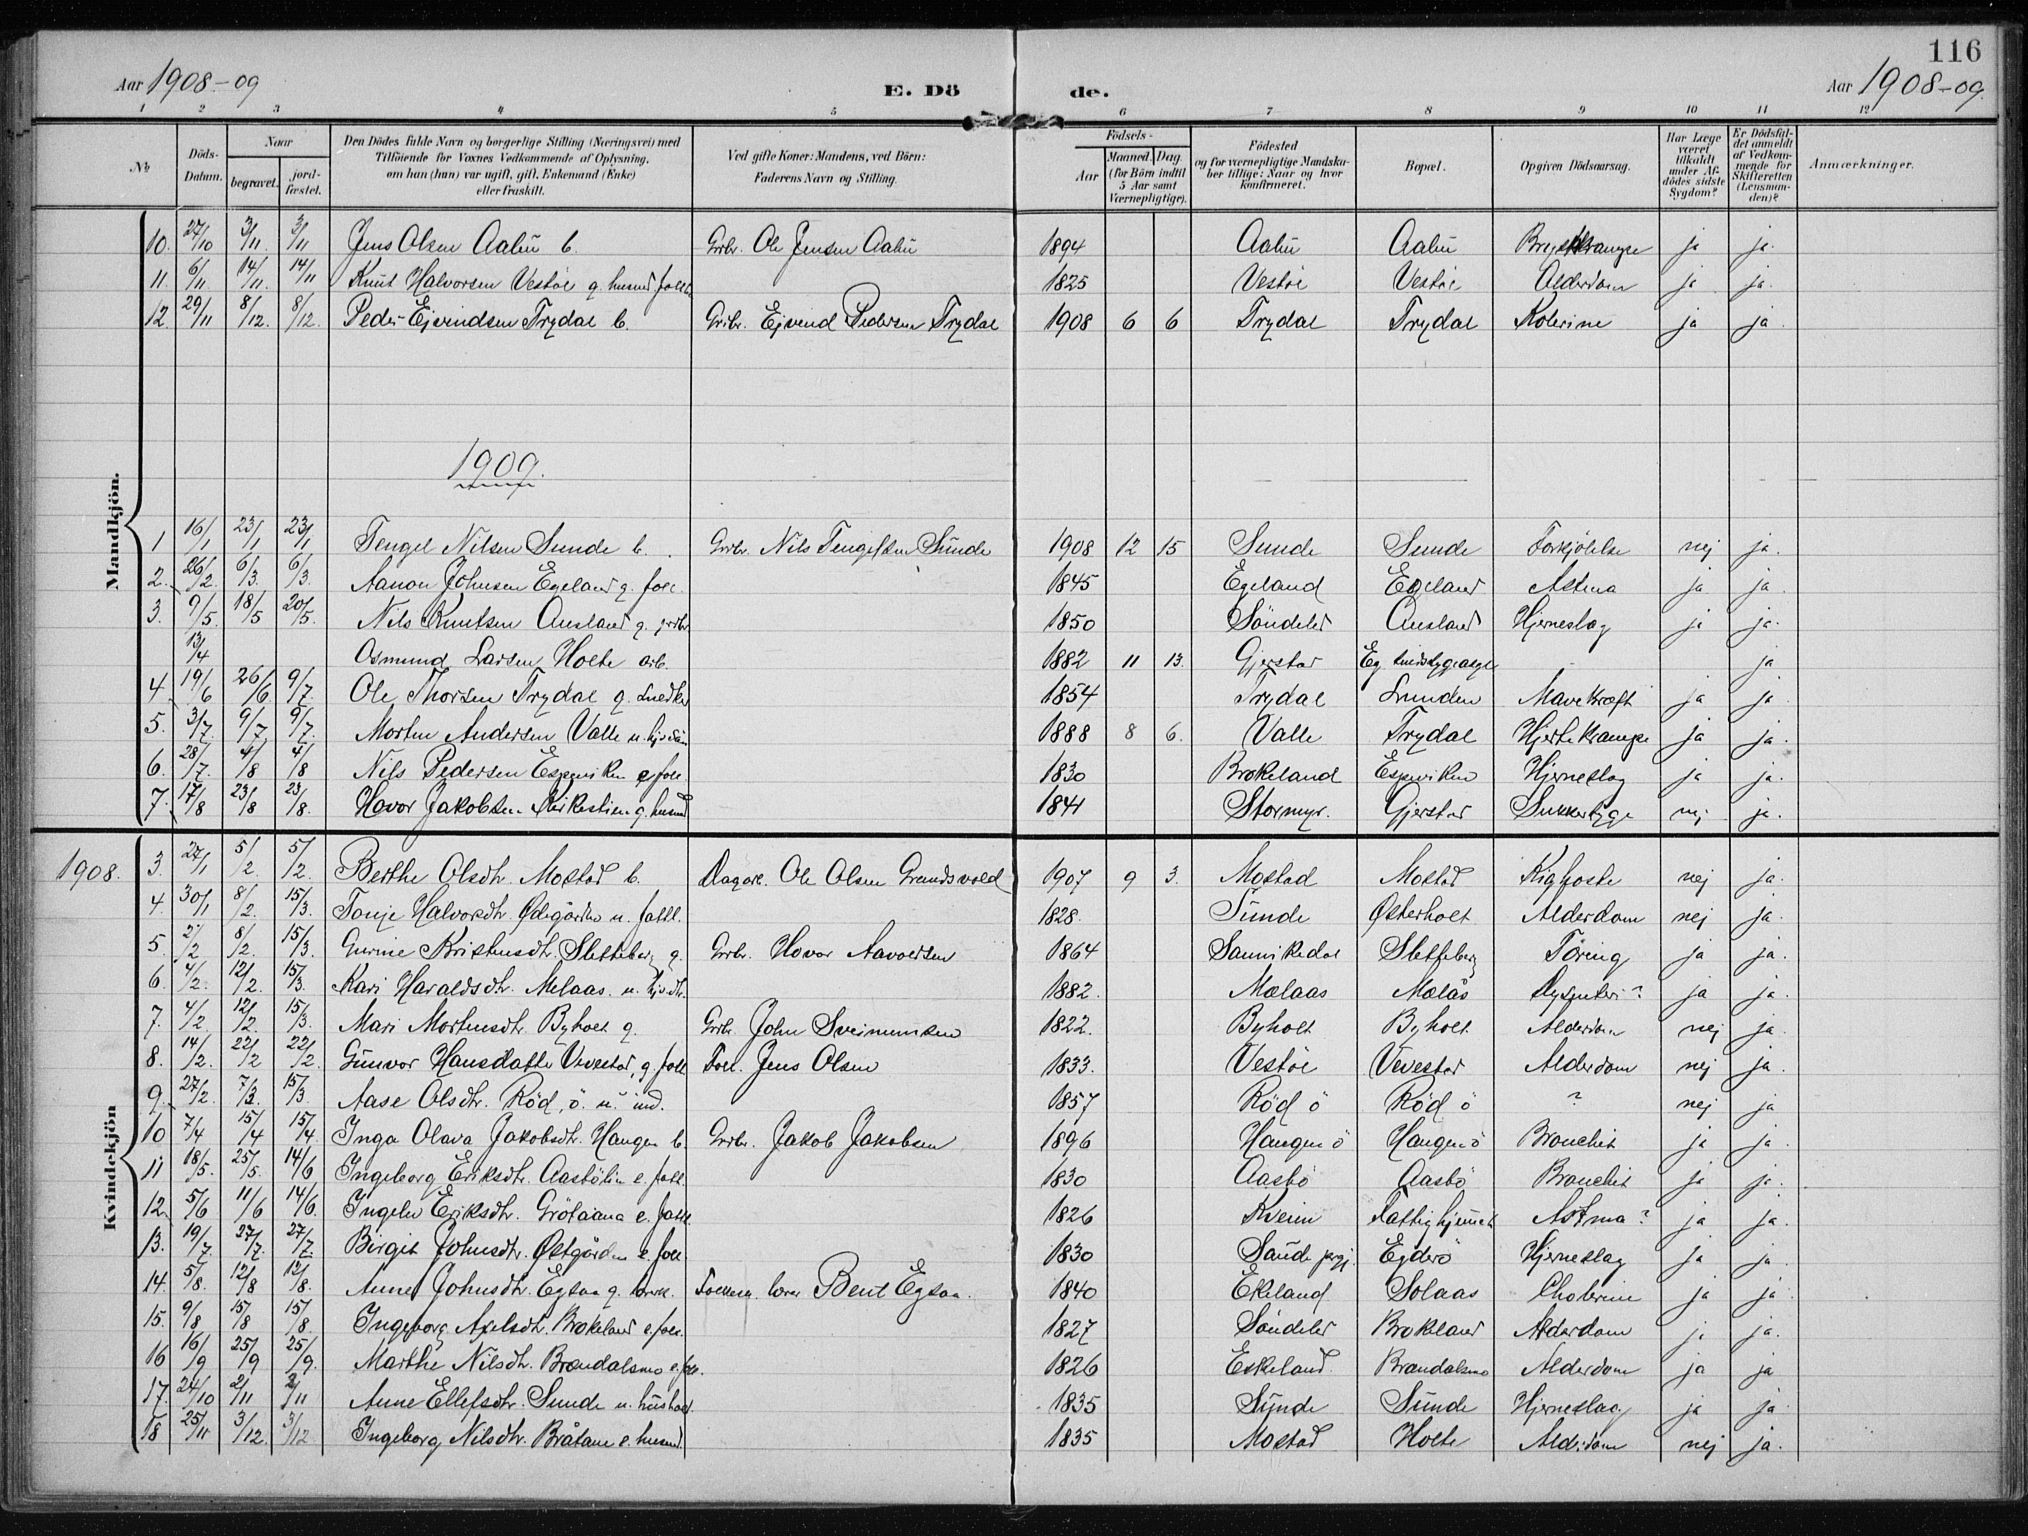 116
Aar 1908-09 E. Dö de. Aar 1908-09.
1 2 3 4 5 6 7 8 9 10 11 12
No Döds-Datum. Naar begravet. jord-fæstet. Den Dödes fulde Navn og borgerlige Stilling (Næringsvei) med Tilföiende for Voxnes Vedkommende af Oplysning, om han (hun) var ugift, gift, Enkemand (Enke) eller fraskilt. Ved gifte Koner: Mandens, ved Börn: Faderens Navn og Stilling. Födsels- Aar Maaned. Dag. (for Börn indtil 5 Aar samt Værnepligtige). Födested og for værnepligtige Mandskaber tillige: Naar og hvor Konfirmeret. Bopæl. Opgiven Dödsaarsag. Har Læge været tilkaldt under Afdödes sidste Sygdom? Er Dödsfaldet anmeldt af Vedkommende for Skifteretten (Lensmanden)? Anmærkninger.
Mandkjön.
10. 27/10 3/11 3/11 Jens Olsen Aabu b. Grbr. Ole Jensen Aabu 1894 Aabu Aabu ja ja.
11. 6/11 14/11. 14/11 Knut Halvorsen Vestöl g. husmd. 1825 Vestöl Vestöl Alderdom ja ja.
12. 29/11 8/12. 8/12. Peder Ejvindsen Trydal b. Grbr. Ejvend Pedersen Trydal 1908 6 6 Trydal Trydal Kolerine ja ja
1909.
1 16/1 23/1 23/1 Tengel Nilsen Sunde b. Grbr. Nils Tengelsen Sunde 1908 12 15 Sunde Sunde Forkjölelse nej ja.
2. 26/2 6/3. 6/3. Aanon Johnsen Egeland g. foll. 1845 Egeland Egeland Astma ja ja.
3. 9/5 18/5 20/5. Nils Knutsen Ausland g. grbr. 1850 Söndeled Ausland Hjerneslag ja ja.
13/4 Osmund Larsen Holte arb. 1882 11 13. Gjerstad Eg sindssygeasyl - ja
4. 19/6 26/6 9/7. Ole Thorsen Trydal g. snedker 1854 Trydal Lunden Mavekræft ja ja
5. 3/7. 9/7. 9/7. Morten Andersen Valle u. 1888 8 6. Valle Trydal Hjertekrampe ja ja.
6. 28/7. 4/8 4/8 Nils Pedersen Espeviken e. foll. 1830 Brokeland Espeviken Hjerneslag ja ja.
7. 17/8 23/8 23/8. Hovor Jakobsen Kirkestien g. husmd 1841 Stormyr. Gjerstad Sukkersyge nej ja.
Kvindekjön
1908. 3. 27/1 5/2. 5/2. Berthe Olsdtr. Mostad b. Dagarb. Ole Olsen Grandsvold 1907 9 3. Mostad Mostad Kighoste nej ja.
4. 30/1 8/2. 15/3. Tonje Halvorsdtr. Ødegården u. fattl. 1828. Sunde Østerholt Alderdom nej ja.
5. 2/2 8/2. 15/3 Gurine Kristensdtr. Sletteberg g. Grbr. Hovor Aavoldsen 1864 Sannikedal Sletteberg Töring ja ja.
6. 4/2. 12/2. 15/3. Kari Haraldsdtr. Melaas. u. 1882. Mælaas Mælås Dysenteri? ja ja.
7. 4/2 12/2. 15/3. Mari Mortensdtr. Byholt g. Grbr. John Sveinunsen 1822. Byholt Byholt Alderdom nej ja.
8. 14/2. 22/2 22/2. Gunvor Hansdatter Vevestad, g. foll. Foll. Jens Olsen 1833. Vestöl Vevestad Alderdom nej ja.
9. 27/2. 7/3. 15/3. Aase Olsdtr. Röd, ö. u. ind. 1857 Röd ö Röd ö ? nej ja
10 7/4 15/4 15/4 Inga Olava Jakobsdtr. Haugen b. Grbr. Jakob Jakobsen 1896 Haugen ö Haugen ö Bronchit ja ja.
11 18/5. 25/5. 14/6 Ingeborg Eriksdtr. Aasbölin e. foll. 1830 Aasbö Aasbö Bronchit ja ja.
12. 5/6 11/6 14/6. Ingeleiv Eriksdtr. Grötaana e. fattl. 1826 Kveim Fattighjemmet Astma? ja ja.
13. 19/7. 27/7. 27/7. Birgit Johnsdtr. Østgården e. foll. 1830 Sande prgj. Egderö Hjerneslag ja ja
14. 5/8. 12/8 12/8. Anne Johnsdtr. Egsaa g. Bent Egsaa. 1840 Ekeland Solaas Cholerine ja ja
15. 9/8 15/8 15/8. Ingeborg Axelsdtr. Brokeland e. foll. 1827 Söndeled Brokeland Alderdom ja ja.
16 16/9 25/9 25/9. Marthe Nilsdtr. Brændalsmo e. foll. 1826 Eskeland. Brændalsmo Alderdom ja ja
17. 24/10 2/11 2/11 Anne Ellefsdtr. Sunde u. 1835 Sunde Sunde Hjerneslag ja ja.
18 25/11 3/12. 3/12 Ingeborg Nilsdtr. Bråtane e. husmd. 1835 Mostad Holte Alderdom nej ja.